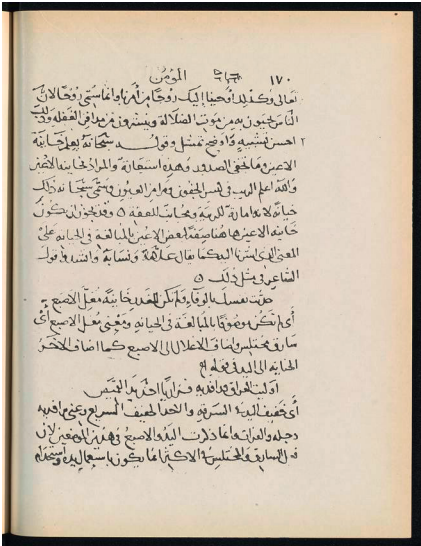 ١٧٠ المؤمن
تعالى وكذلك أوحينا إليك روحًا من أمرنا وانما سمّى روحًا لان
الناس يحيون به من موت الضلالة وينشرون من مدافن الغفلة وذلك
احسن تشبيه واوضح تمثيل وقوله سبحانه يعلم خاينة
الاعين وما تخفى الصدور وهذه استعارة والمراد بخاينة الاعين
والله اعلم الريب في العيون وسمّى سبحانه ذلك
خيانة لانه امارة للريبة ومجانب للعفة ه وقد يجوز ان يكون
خاينة الاعين هاهنا صفة لبعض الاعين بالمبالغة في الخيانة على
المعنى الذي اشرنا اليه كما يقال علّامة ونسّابة وانشد قول
الشاعر في مثل ذلك ه
حدّثت نفسك بالوفاء ولم تكن للغدر خاينة مغلّ الاصبع
أي لم تكن موصوفًا بالمبالغة في الخيانة ومعنى مغل الاصبع أي
سارق مختلس واضاف الاغلال الى الاصبع كما اضاف الاخر
الخيانة الى اليد في قوله
اوليت العراق ورافديه فزاريا احذّ يد القميص
أي خفيف اليد في السرقة والاحذ الخفيف السريع وعنى برافديه
دجلة والفرات وانما ذكرت اليد والاصبع في هذين الموضعين لان
فعل السارق والمختلس في الاكثر انما يكون باستعمال يده واستخدام